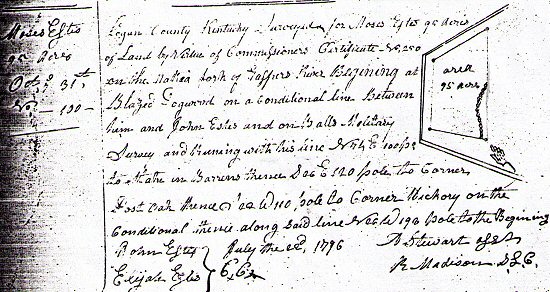 Moses Estes
95 Acres
Oct. 31st
No. 190
Logan County Kentucky Surveyed for Moses Estes 95 Acres
of Land by Virtue of Commissioners Certificate No. 250
on the fork of Gaspers River Begining at
Blazed Dogwood on a Conditional line Between
him and John Estes and on Balls Military
Survey and Runing with his line
to a Stake in Barrens thence E 120 pole to Corner
Post Oak thence W 110 pole to Corner Hickory on the
Conditional thence along said line W 190 pole to the Begining
John Estes
Elijah Estes
C.Cs
July the 22d, 1796
A Stewart
R Madison D.S.C.
area
95 acre